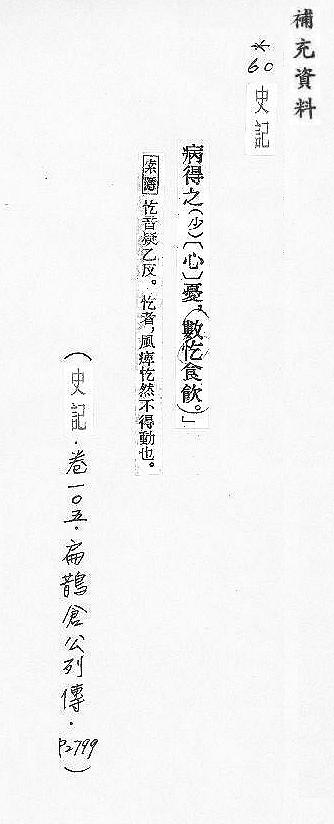 補充資料
*60 史記
病得之(少)〔心〕憂,(數忔食飲。)」
索隱 忔音疑乙反。忔者,風痺忔然不得動也。
(史記.卷一0五.扁鵲倉公列傳.P2799)